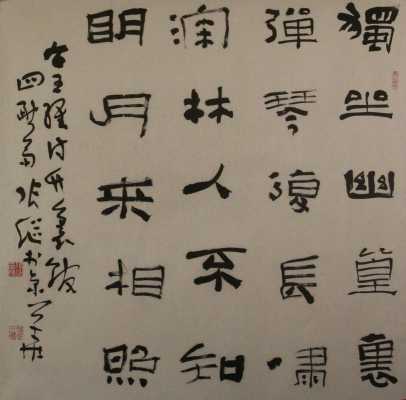 獨坐幽篁裏
彈琴復長嘯
深林人不知
明月來相照
右王維詩竹裏館